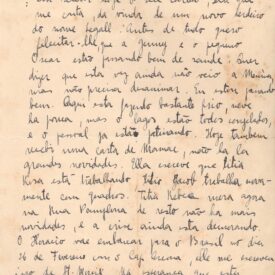 me conta, da vinda de um novo herdeiro
do nome Segall. Antes de tudo quero
felicitar-lhe que a Jenny e o pequeno
Oscar estão passando bem de saude. Quer
dizer que esta vez ainda não veio a Menina,
mas não precisa desanimar. Eu estou passando
bem. Aqui esta fazendo bastante frio, neve
ha pouca, mas o lagos estão todos congelados,
e o pessoal ja está patinando. Hoje tambem
recebi uma carta de Mamãe, não ha la
grandes novidades. Ella escreve que titia
Rosa está trabalhando. Titio Jacob trabalha nova-
mente com quadros. Titia Rebeca mora agora
na Rua Pompeia de resto não ha mais
novidades, e a crise ainda esta demorando.
O Horacio vae embarcar para o Brasil no dia
26 de Fevereiro com o Cap. elle me escreveu